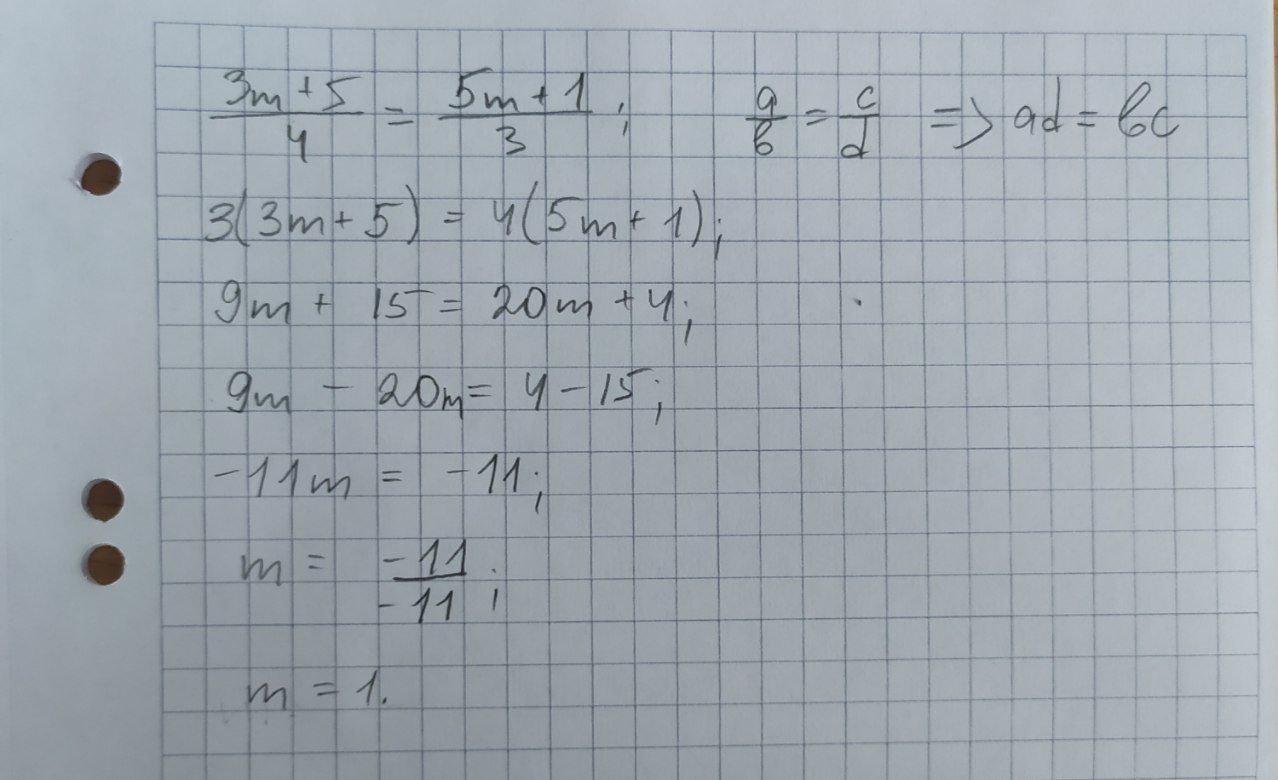 (3m+5)/4 = (5m+1)/3 ; a/b = c/d => ad = bc
3(3m+5) = 4(5m+1);
9m + 15 = 20m + 4;
9m - 20m = 4 - 15;
-11m = -11;
m = -11/-11 ;
m = 1.